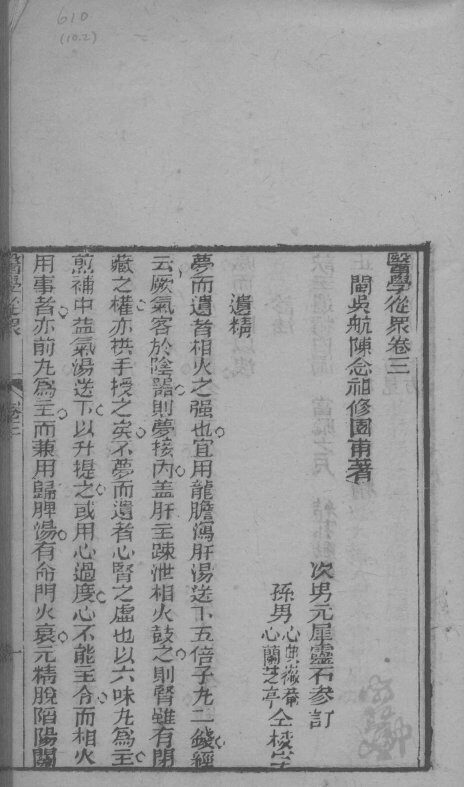 610
(10.2)
醫學從眾卷三
閩吳航陳念祖修園甫著
次男元犀靈石參訂
孫男心典徽菴
心蘭芝亭仝校字
遺精
夢而遺者相火之強也宜用龍膽瀉肝湯送下五倍子丸二錢經
云厥氣客於陰器則夢接內盖肝主疎泄相火鼓之則腎雖有閉
藏之權亦拱手授之矣不夢而遺者心腎之虛也以六味丸為主
煎補中益氣湯送下以升提之或用心過度心不能主令而相火
用事者亦前丸為主而兼用歸脾湯有命門火衰元精脫陷陽關
醫學從眾
卷三
一